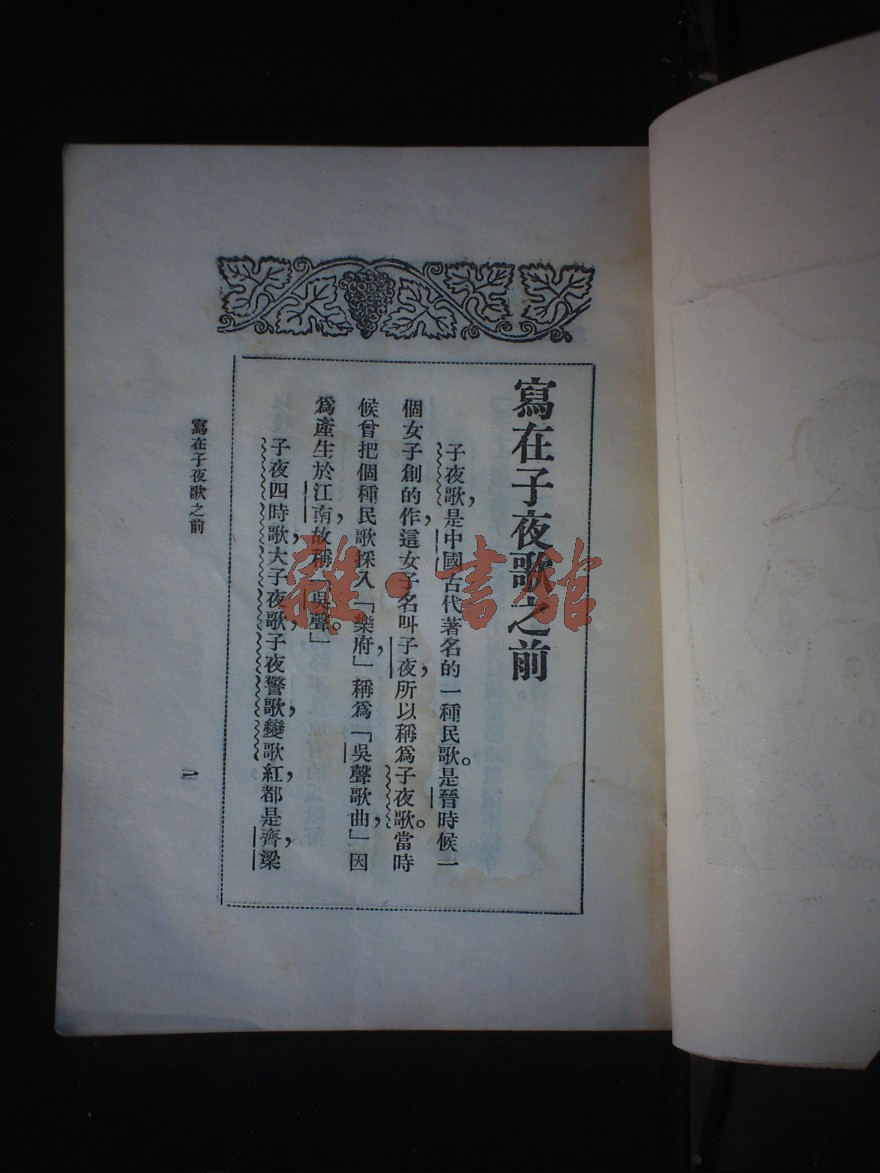 寫在子夜歌之前
子夜歌，是中國古代著名的一種民歌。是晉時候一
個女子創的作，這女子名叫子夜，所以稱爲子夜歌。當時
候曾把個種民歌採入「樂府」，稱爲「吳聲歌曲」，因
爲產生於江南，故稱「吳聲」。
子夜四時歌，大子夜歌，子夜警歌，變歌紅，都是齊，梁
寫在子夜歌之前
一
雜·書館